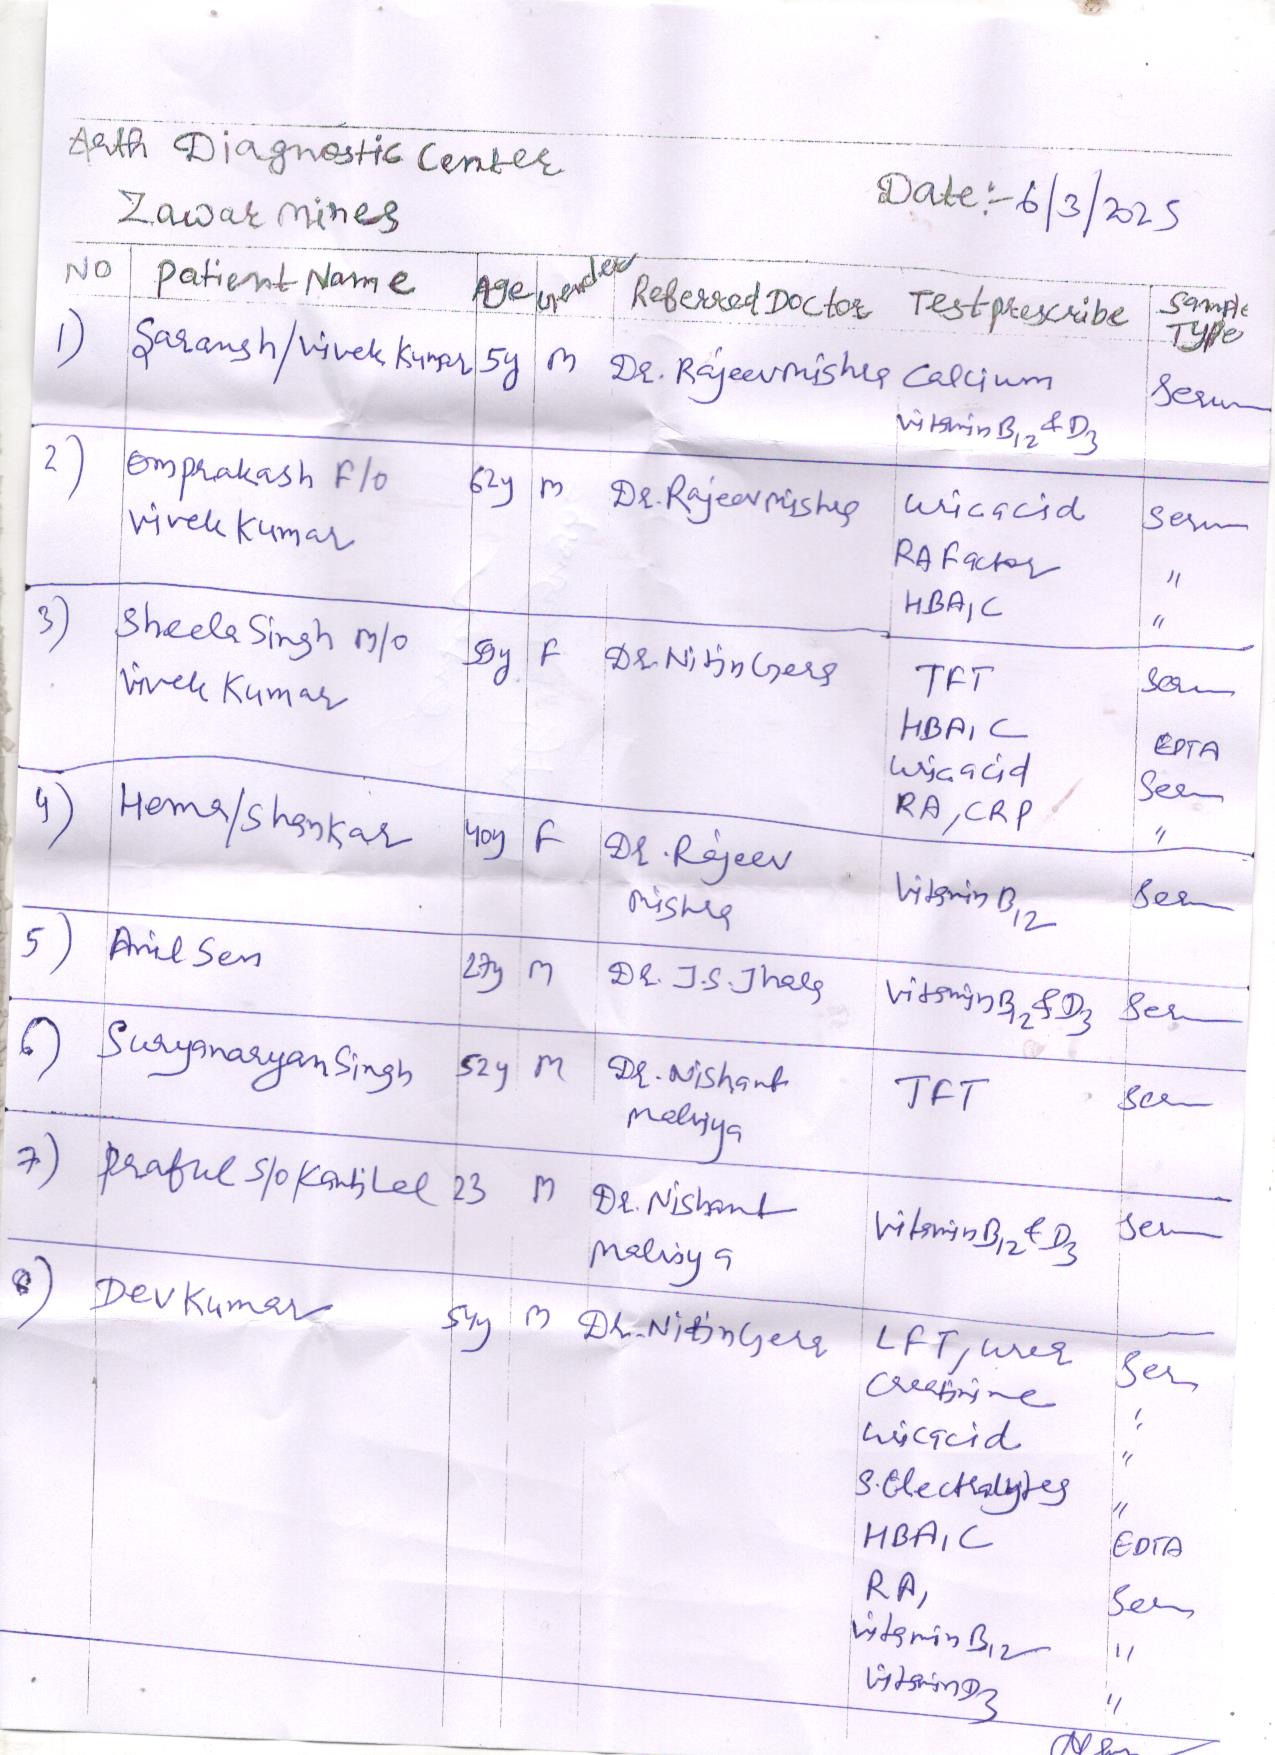 Arth Diagnostic Center
Zawar mines
Date:- 6/3/2025
NO Patient Name Age Gender Referred Doctor Test prescribe Sample Type
1) Saransh/Vivek Kumar 5y M Dr. Rajeev Mishra Calcium Serum
Vitamin B12 & D3
2) Omprakash F/o 62y M Dr. Rajeev Mishra Uric acid Serum
Vivek Kumar RA Factor "
HBA1C "
3) Sheela Singh M/o 59y F Dr. Nitin Gera TFT Serum
Vivek Kumar HBA1C EDTA
Uric acid Serum
RA, CRP "
4) Hema/Shankar 40y F Dr. Rajeev Vitamin B12 Serum
Mishra
5) Anil Sen 27y M Dr. J.S. Jhala Vitamin B12 & D3 Serum
6) Suryanaryan Singh 52y M Dr. Nishant TFT Serum
Malviya
7) Praful S/o Kantilal 23 M Dr. Nishant Vitamin B12 & D3 Serum
Malviya
8) Dev Kumar 54y M Dr. Nitin Gera LFT, Urea Serum
Creatinine "
Uric acid "
S. Electrolytes "
HBA1C EDTA
RA, Serum
Vitamin B12 "
Vitamin D3 "